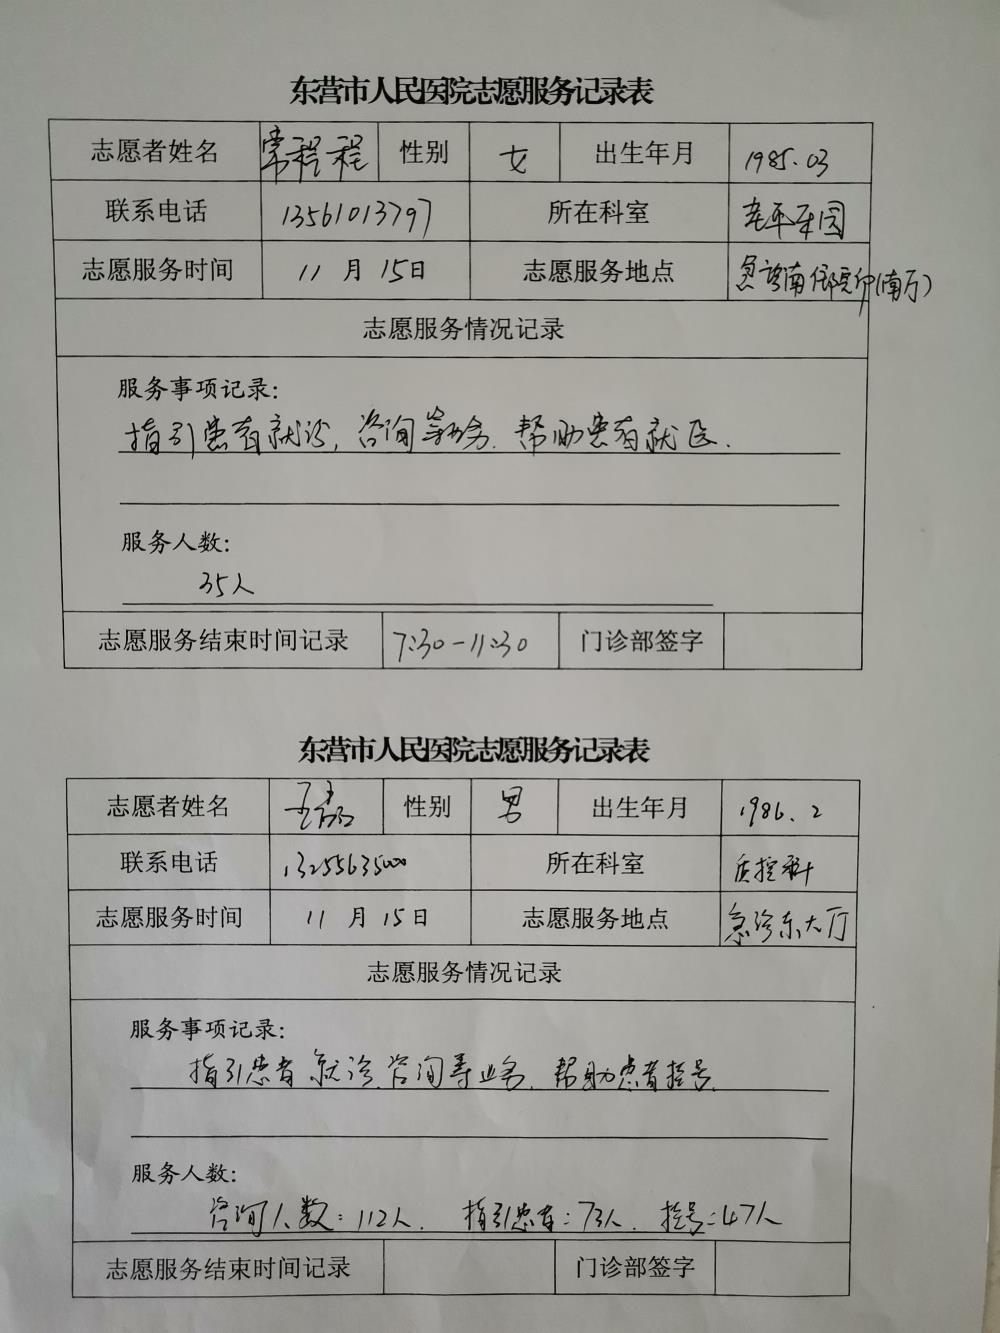 东营市人民医院志愿服务记录表
志愿者姓名 常程程 性别 女 出生年月 1985.03
联系电话 13561013797 所在科室
志愿服务时间 11 月 15日 志愿服务地点 (南厅)
志愿服务情况记录
服务事项记录:
指引患者就诊,咨询等服务.帮助患者就医.
服务人数:
35人
志愿服务结束时间记录 7:30-11:30 门诊部签字
东营市人民医院志愿服务记录表
志愿者姓名 王 性别 男 出生年月 1986.2
联系电话 13255635000 所在科室 质控科
志愿服务时间 11 月 15日 志愿服务地点 急诊东大厅
志愿服务情况记录
服务事项记录:
指引患者就诊.咨询等业务.帮助患者挂号.
服务人数:
咨询人数:112人. 指引患者:73人. 挂号:47人
志愿服务结束时间记录 门诊部签字